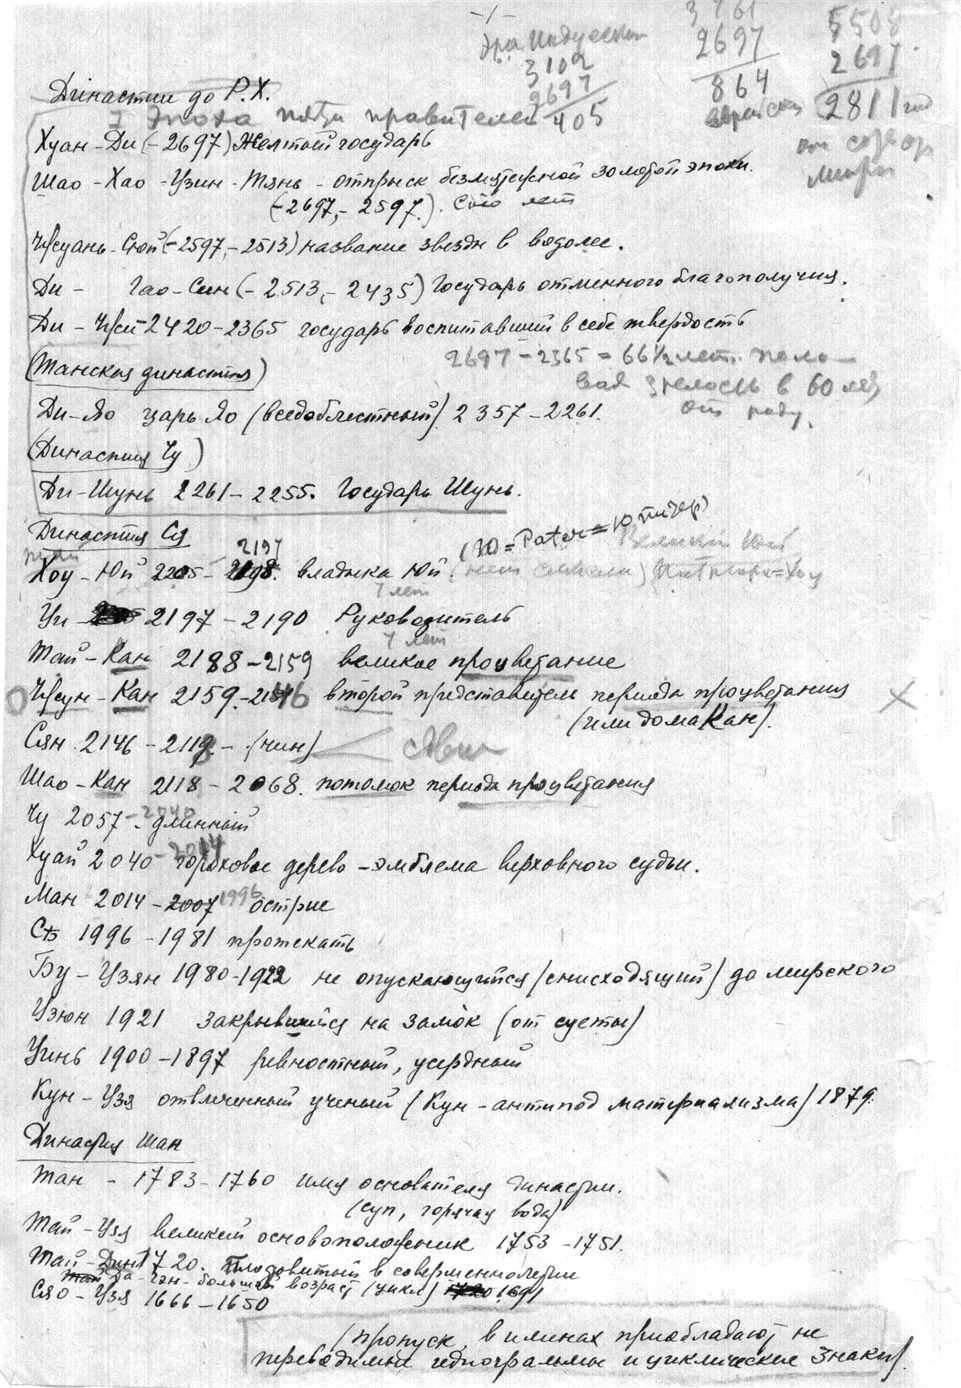 Эра Индусской
3102
2697
405
3761
2697
864
еврейск
5508
2697
2811 год
от сотвор
мира
Династии до Р.Х.
I Эпоха пяти правителей
Хуан-Ди (-2697) Желтый государь
Шао-Хао-Цзин-Тянь - отпрыск безмятежной золотой эпохи.
(-2697, -2597). Сто лет
Чжуань-Сюй (-2597, -2513) название звезды в водолее.
Ди - Гао-Син (-2513, -2435) Государь отменного благополучия.
Ди - Чжи - 2420-2365 государь воспитавший в себе твердость
2697-2365 = 66½ лет. поло-
вая зрелость в 60 лет
от роду.
(Танская династия)
Ди-Яо царь Яо (вседоблестный) 2357-2261.
(Династия Чу)
Ди-Шунь 2261-2255. Государь Шунь.
Династия Ся
(Ю = Pater = Юпитер)
Великий Юй
2197
Хоу-Юй 2205-2198. владыка Юй (нет смысла)
7 лет
Ци 2197-2190 Руководитель
7 лет
Тай-Кан 2188-2159 великое процветание
Чжун-Кан 2159-2146 второй представитель периода процветания
(или дома Кан).
Сян 2146-2118 - (чин)
Шао-Кан 2118-2068. потомок периода процветания
Чу 2057-2040 - длинный
Хуай 2040-2014 гороховое дерево - эмблема верховного судьи.
Ман 2014-2007 1996 острие
Сѣ 1996-1981 протекать
Бу-Цзян 1980-1922 не опускающийся (снисходящий) до мирского
Цзюн 1921 закрывшийся на замок (от суеты)
Цинь 1900-1897 ревностный, усердный
Кун-Цзя отвлеченный ученый (Кун - антипод материализма) 1879.
Династия Шан
Тан - 1783-1760 имя основателя династии.
(суп, горячая вода)
Тай-Цзя великий основоположник 1753-1751.
Тай-Дин 1720. Плодовитый в совершеннолетии
Да-Гэн - большой возраст (цикл) 1720 1691
Сяо-Цзя 1666-1650
(пропуск, в именах преобладают не
переводимые идиограммы и циклические знаки).